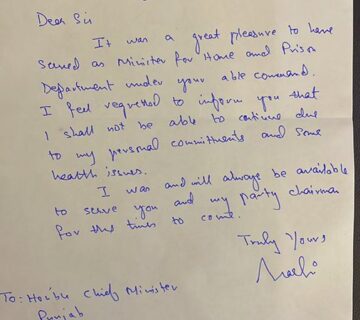 Dear Sir
It was a great pleasure to have
served as Minister for Home and Prison
Department under your able command.
I feel regretted to inform you that
I shall not be able to continue due
to my personal commitments and some
health issues.
I was and will always be available
to serve you and my party chairman
for the times to come.
Truly Yours
To: Hon'ble Chief Minister
Punjab